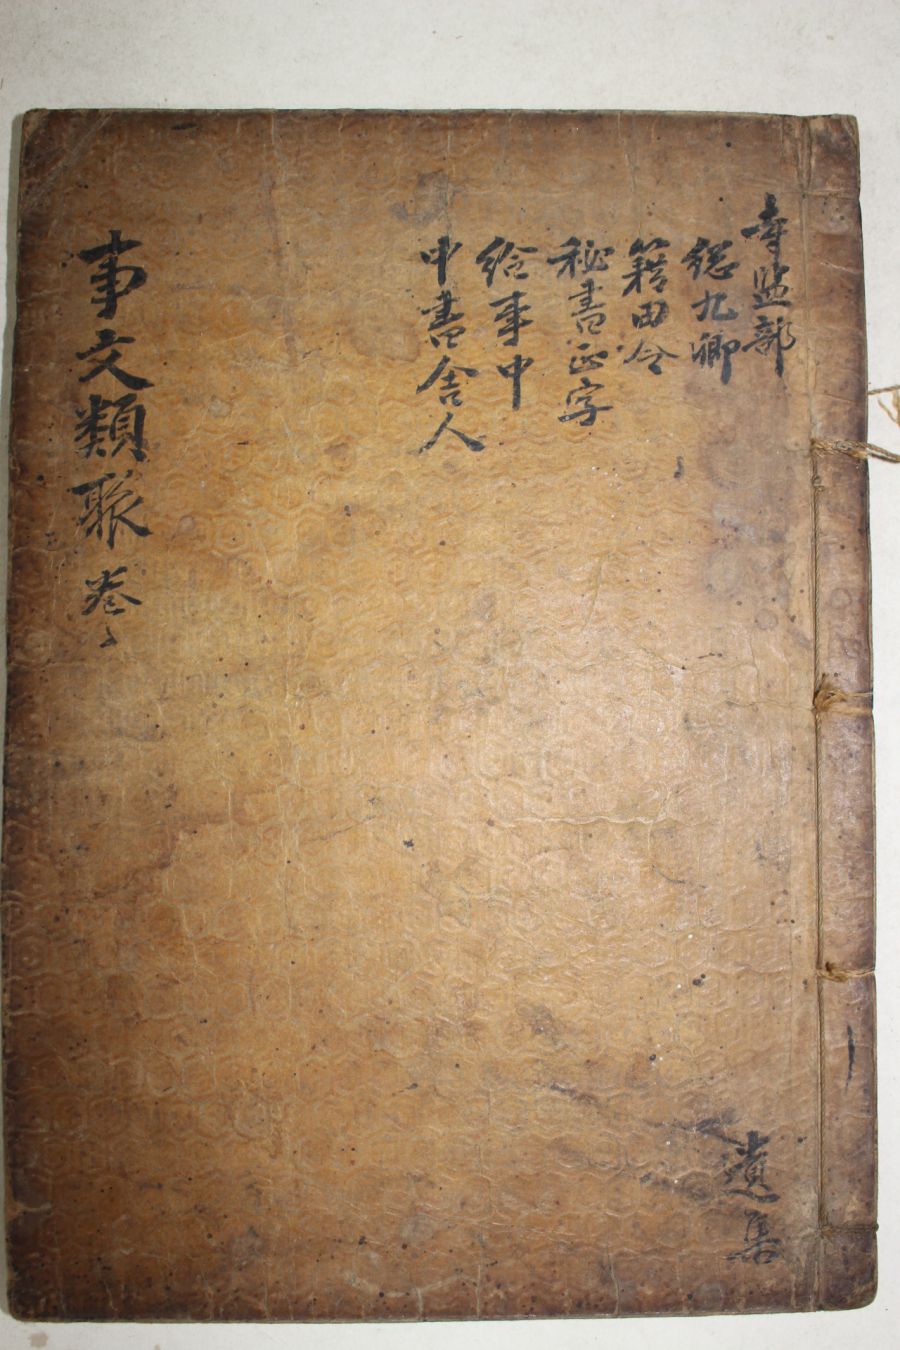 寺监部
総九卿
籍田令
秘書正字
給事中
中書舎人
事文類聚 卷
遺集